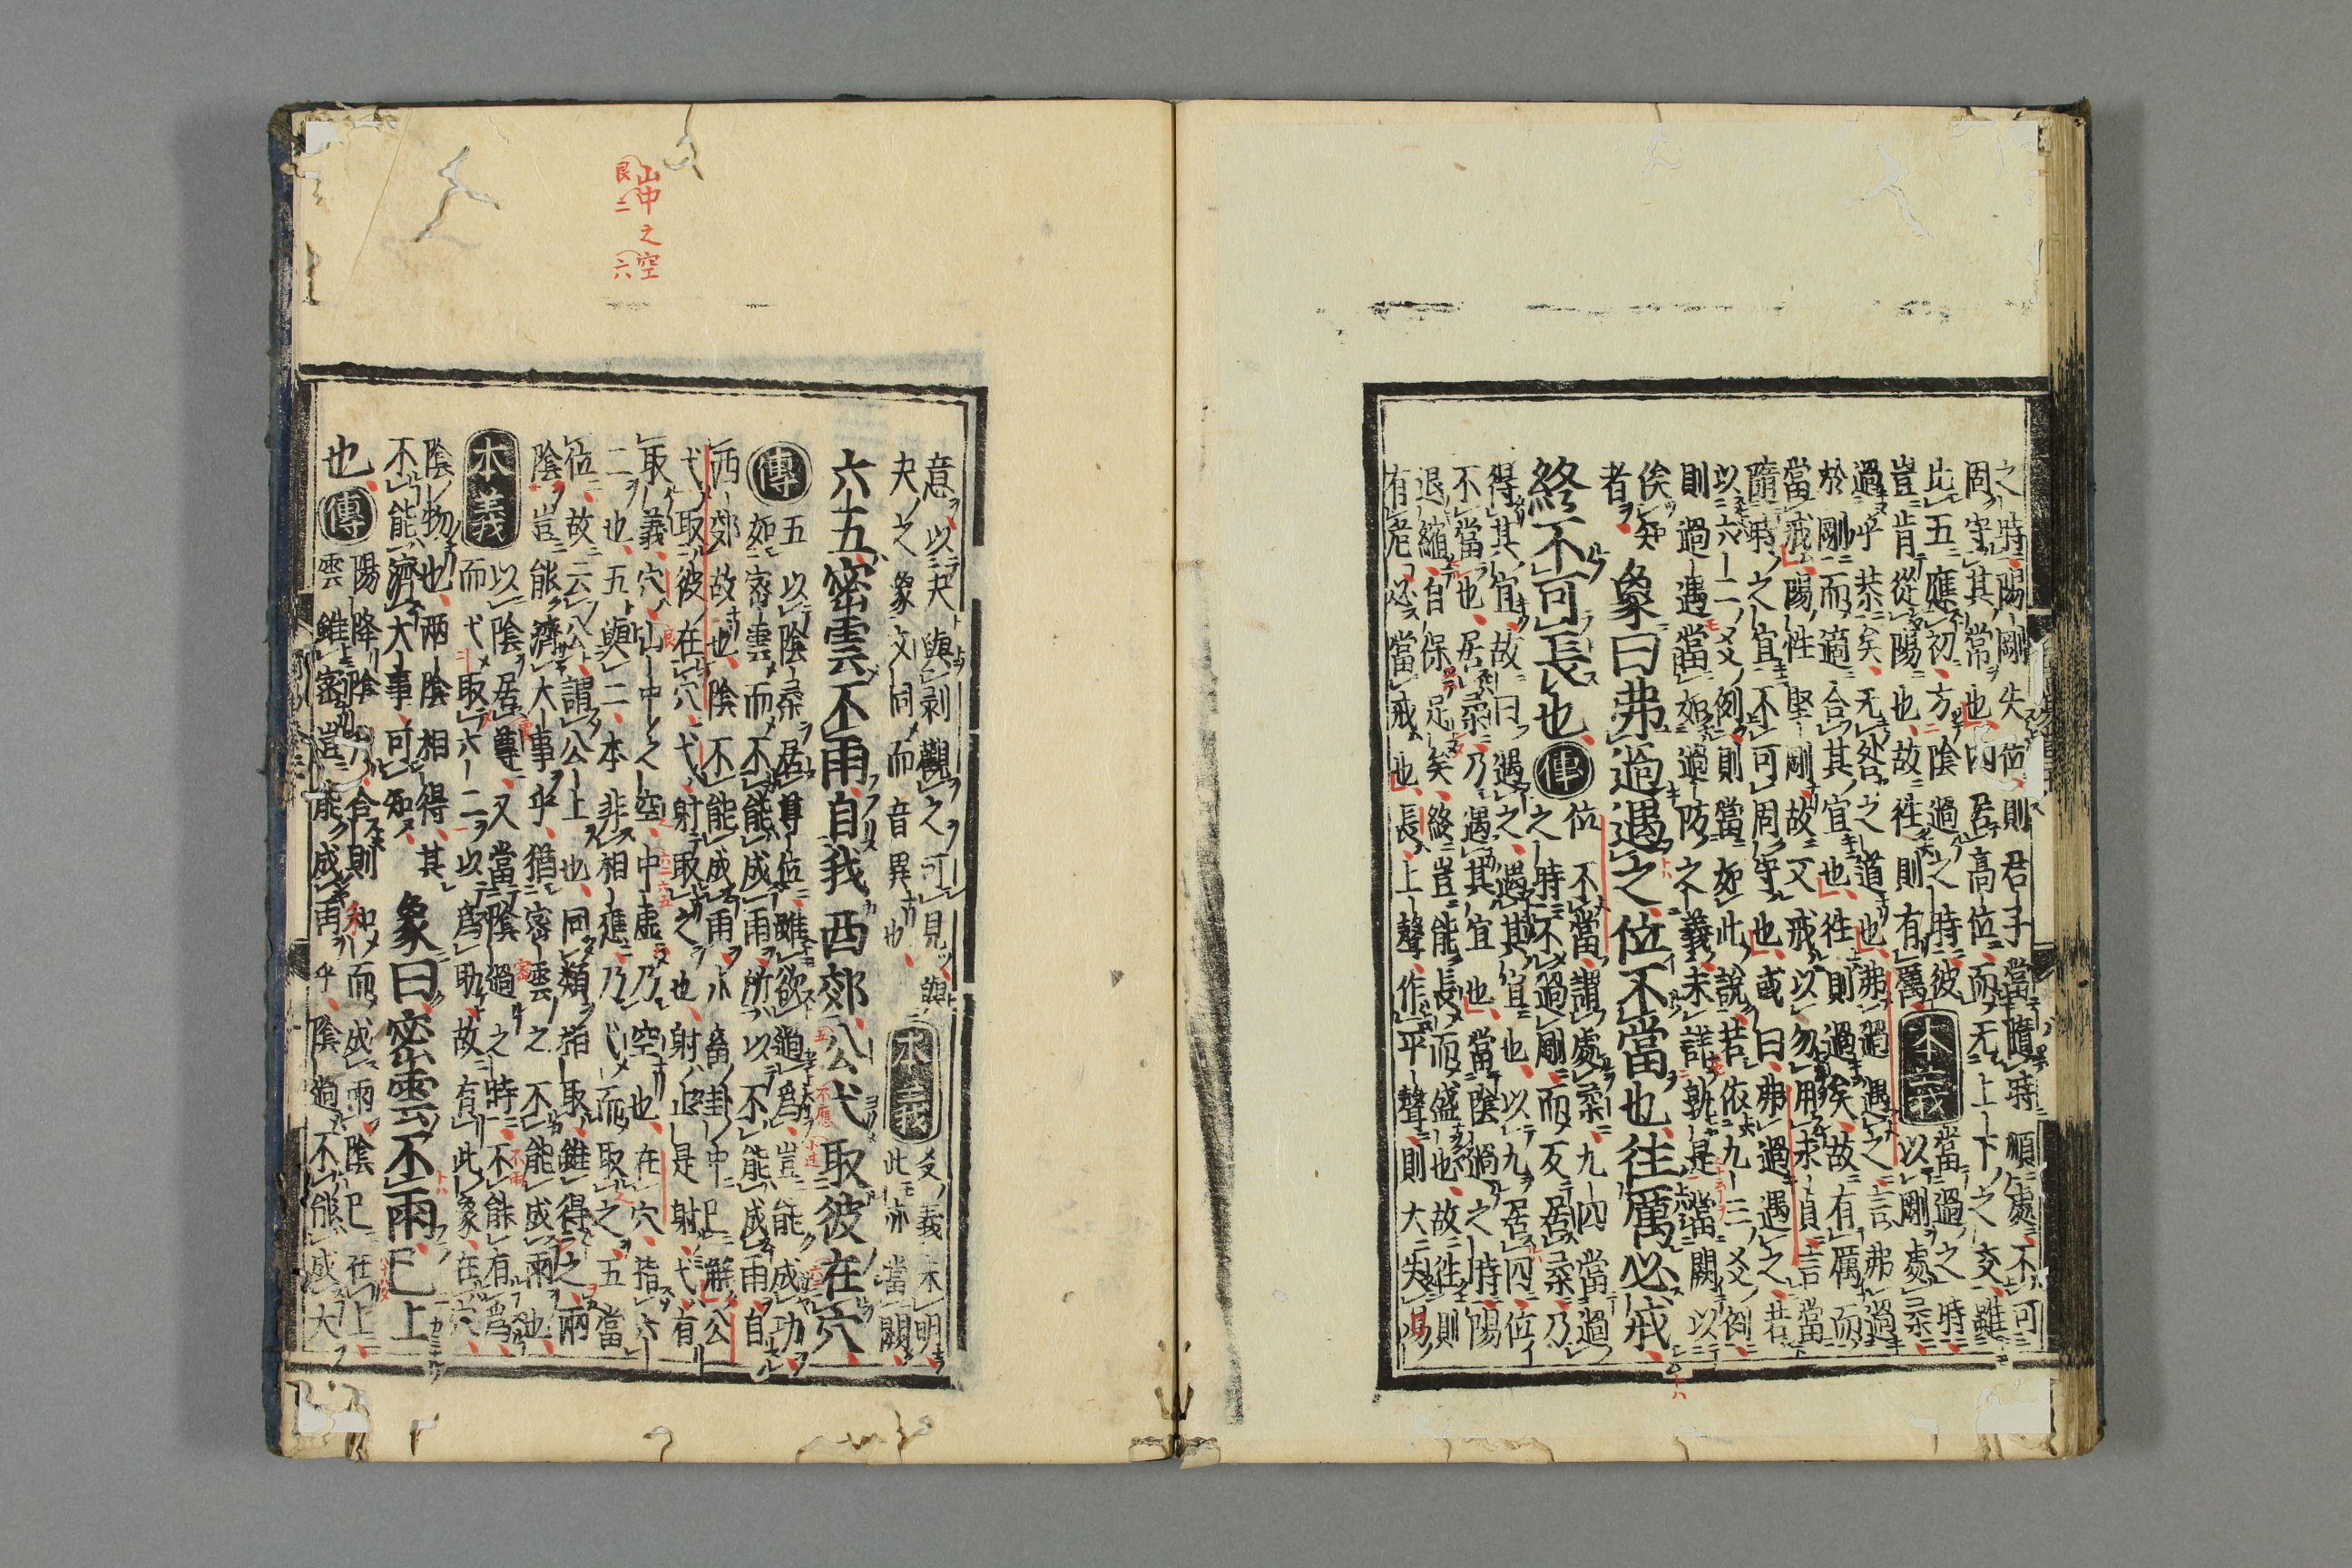 之時陽剛失位則君子當隨時順處不可
固守其常也四居高位而无上下之交雖
比五應初方陰過之時彼
豈肯從陽也故往則有厲
本義
當過之時
以剛處柔
過乎恭矣无咎之道也弗過遇之言弗過
於剛而適合其宜也往則過矣故有厲而
當戒陽性堅剛故又戒以勿用永貞言當
隨時之宜不可固守也或曰弗過遇之若
以六二爻例則當如此說若依九三爻例
則過遇當如過防之義未詳孰是當闕以
俟知
者
象曰弗過遇之位不當也往厲必戒
終不可長也
傳
位不當謂處柔九四當過
之時不過剛而反居柔乃
得其宜故曰遇之遇其宜也以九居四位
不當也居柔乃遇其宜也當陰過之時陽
退縮自保足矣終豈能長而盛也故往則
有危必當戒也長上聲作平聲則大失易
意以夬與剝觀之可見與
夬之象文同而音異也
本義
爻義未明
此亦當闕
六五密雲不雨自我西郊公弋取彼在穴
傳
五以陰柔居尊位雖欲過爲豈能成功
如密雲而不能成雨所以不能成雨自
西郊故也陰不能成雨小畜卦中已解公
弋取彼在穴弋射取之也射止是射弋有
取義穴山中之空中虛乃空也在穴指六
二也五與二本非相應乃弋而取之五當
位故云公謂公上也同類相取雖得之兩
陰豈能濟大事乎猶密雲之不能成雨也
本義
以陰居尊又當陰過之時不能有爲
而弋取六二以爲助故有此象在穴
陰物也兩陰相得其
不能濟大事可知
象曰密雲不雨已上
也
傳
陽降陰升合則和而成雨陰已在上
雲雖密豈能成雨乎陰過不能成大
山中之空